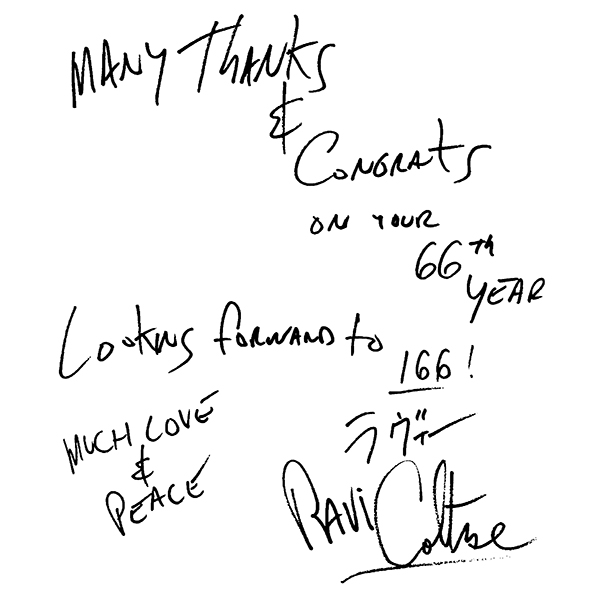 MANY THANKS
&
CONGRATS
ON YOUR
66TH
YEAR
Looking forward to
166!
MUCH LOVE
&
PEACE
ラヴィー
RAVI Coltrane